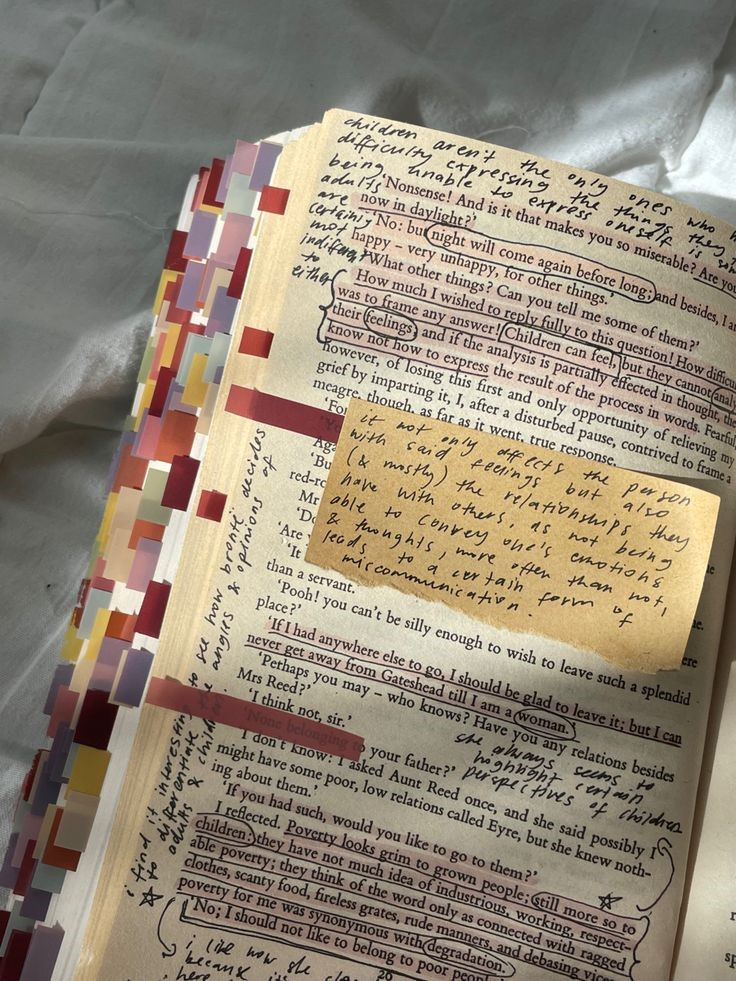 children aren't the only ones who
difficulty expressing the things they
being unable to express oneself is
adults
are
certainly
not
indifferent
to
either
'Nonsense! And is it that makes you so miserable? Are you
now in daylight?'
'No: but night will come again before long; and besides, I am
happy – very unhappy, for other things.'
'What other things? Can you tell me some of them?'
How much I wished to reply fully to this question! How difficult
was to frame any answer! Children can feel, but they cannot
their feelings; and if the analysis is partially effected in thought, they
know not how to express the result of the process in words. Fearful,
however, of losing this first and only opportunity of relieving my
grief by imparting it, I, after a disturbed pause, contrived to frame a
meagre, though, as far as it went, true response.
'For
Aga
'Bu
red-ro
Mr
'Do
'Are
'It
it not only affects the person
with said feelings but also
(& mostly) the relationships they
have with others, as not being
able to convey one's emotions
& thoughts, more often than not,
leads to a certain form of
miscommunication.
than a servant.
'Pooh! you can't be silly enough to wish to leave such a splendid
place?'
'If I had anywhere else to go, I should be glad to leave it; but I can
never get away from Gateshead till I am a woman.'
'Perhaps you may – who knows? Have you any relations besides
Mrs Reed?'
'I think not, sir.'
'None belonging to your father?'
'I don't know: I asked Aunt Reed once, and she said possibly I
might have some poor, low relations called Eyre, but she knew noth-
ing about them.'
she always seems to
highlight certain
perspectives of children
'If you had such, would you like to go to them?'
I reflected. Poverty looks grim to grown people; still more so to
children: they have not much idea of industrious, working, respect-
able poverty; they think of the word only as connected with ragged
clothes, scanty food, fireless grates, rude manners, and debasing vices:
poverty for me was synonymous with degradation.
'No; I should not like to belong to poor people
20
i find it interesting to see how brontë decides
to differentiate the angles & opinions of
adults & children
i like how she
because
here